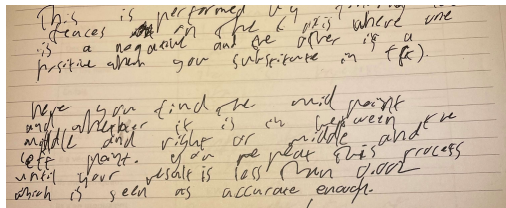 This is performed by finding two
places on the x axis where one
is a negative and the other is a
positive when you substitute in f(x).
here you find the mid point
and whether it is in between
middle and right or middle and the
left point. you repeat this process
until your result is less than 0.002
which is seen as accurate enough.